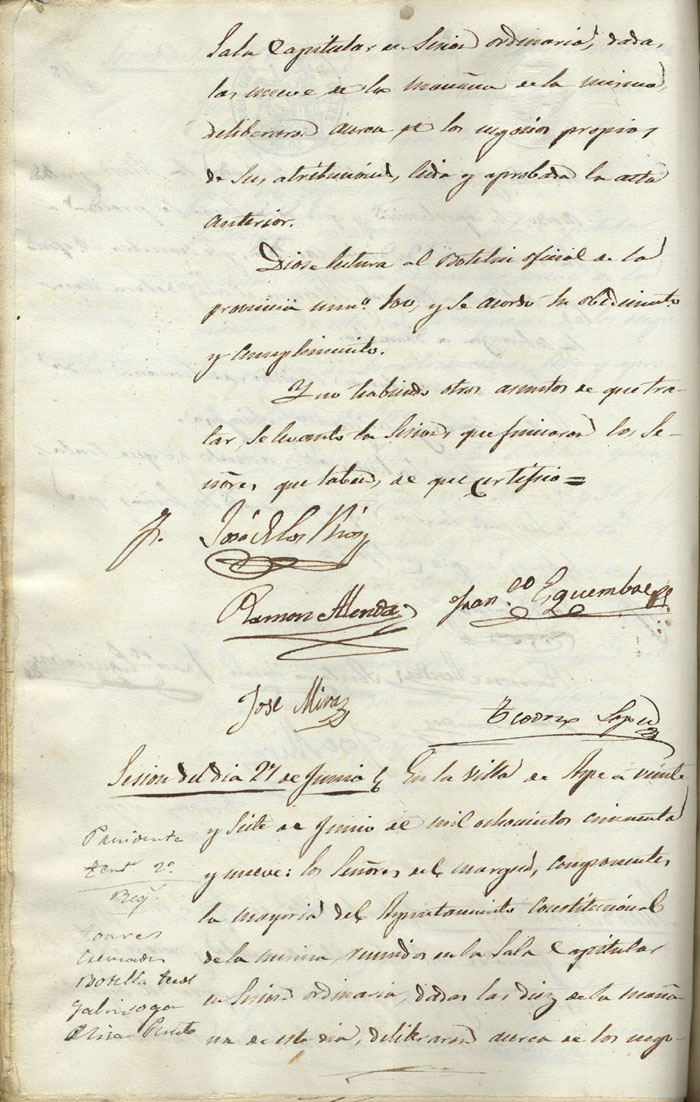 Sala Capitular en Sesion ordinaria, dadas
las nueve de la mañana de la misma,
deliberaron acerca de los negocios propios
de sus atribuciones, leida y aprobada la acta
anterior.
Diose lectura al Boletin oficial de la
provincia num.º 100, y se acordó su obedecimto
y cumplimiento.
Y no habiendo otros asuntos de que tra-
tar se levantó la Sesion, que firmaron los Se-
ñores que saben, de que certifico =
José de los Rios
Ramon Alenda
Fran.co Eguembae
Jose Mira
Teodoro Lopez
Sesion del dia 27 de Junio
En la Villa de Aspe a veinte
y siete de Junio de mil ochocientos cincuenta
y nueve: los Señores del margen, componentes
la mayoria del Ayuntamiento Constitucional
de la misma, reunidos en la Sala Capitular
en Sesion ordinaria, dadas las diez de la maña-
na de este dia, deliberaron acerca de los nego-
Presidente
Tente 2º
Torres
Cremades
Botella
Galinsoga